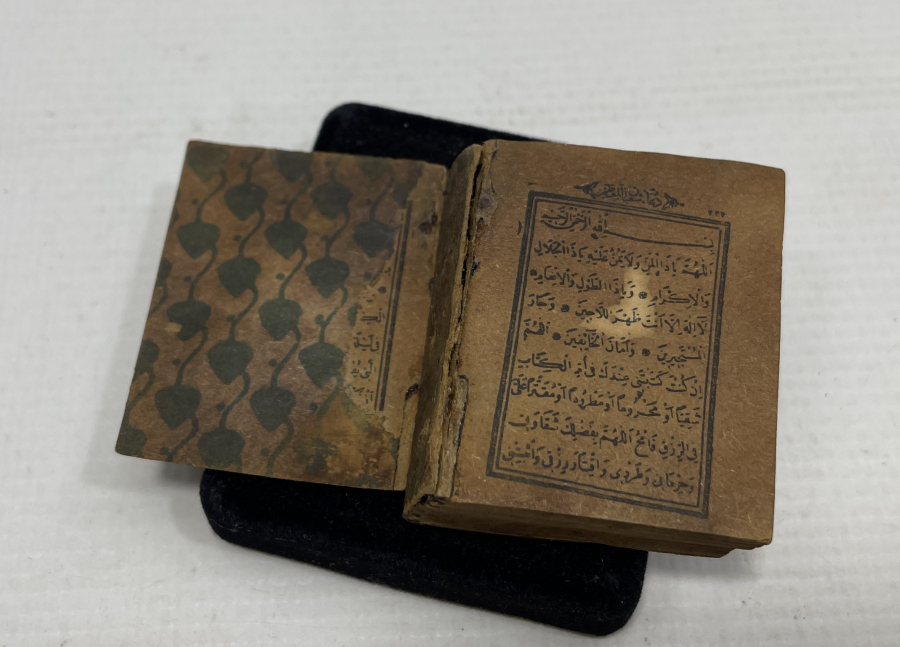 ٢٢٧
بسم الله الرحمن الرحيم
اَللّٰهُمَّ يَاذَا الْمَنِّ وَلَا يُمَنُّ عَلَيْهِ يَاذَا الْجَلَالِ
وَالْاِكْرَامِ * وَيَاذَا الطَّوْلِ وَالْاِنْعَامِ *
لَا اِلٰهَ اِلَّا اَنْتَ ظَهْرَ اللَّاجِينَ * وَجَارَ
الْمُسْتَجِيرِينَ * وَاَمَانَ الْخَائِفِينَ * اَللّٰهُمَّ
اِنْ كُنْتَ كَتَبْتَنِى عِنْدَكَ فِى اُمِّ الْكِتَابِ
شَقِيًّا اَوْ مَحْرُومًا اَوْ مَطْرُودًا اَوْ مُقَتَّرًا عَلَىَّ
فِى الرِّزْقِ فَامْحُ اَللّٰهُمَّ بِفَضْلِكَ شَقَاوَتِى
وَحِرْمَانِى وَطَرْدِى وَاقْتَارَ رِزْقِى